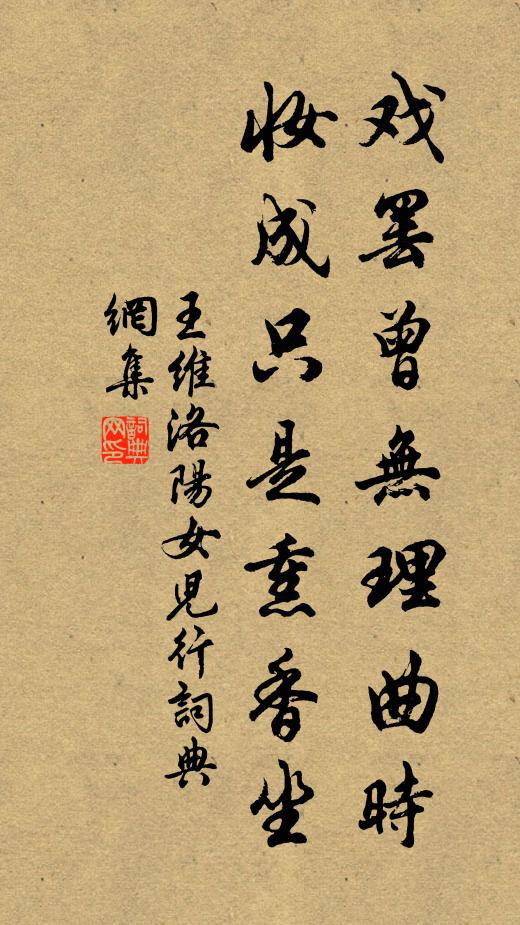 戏罢曾無理曲時
妝成只是熏香坐
王維洛陽女児行詞典
網集
詞典
网印